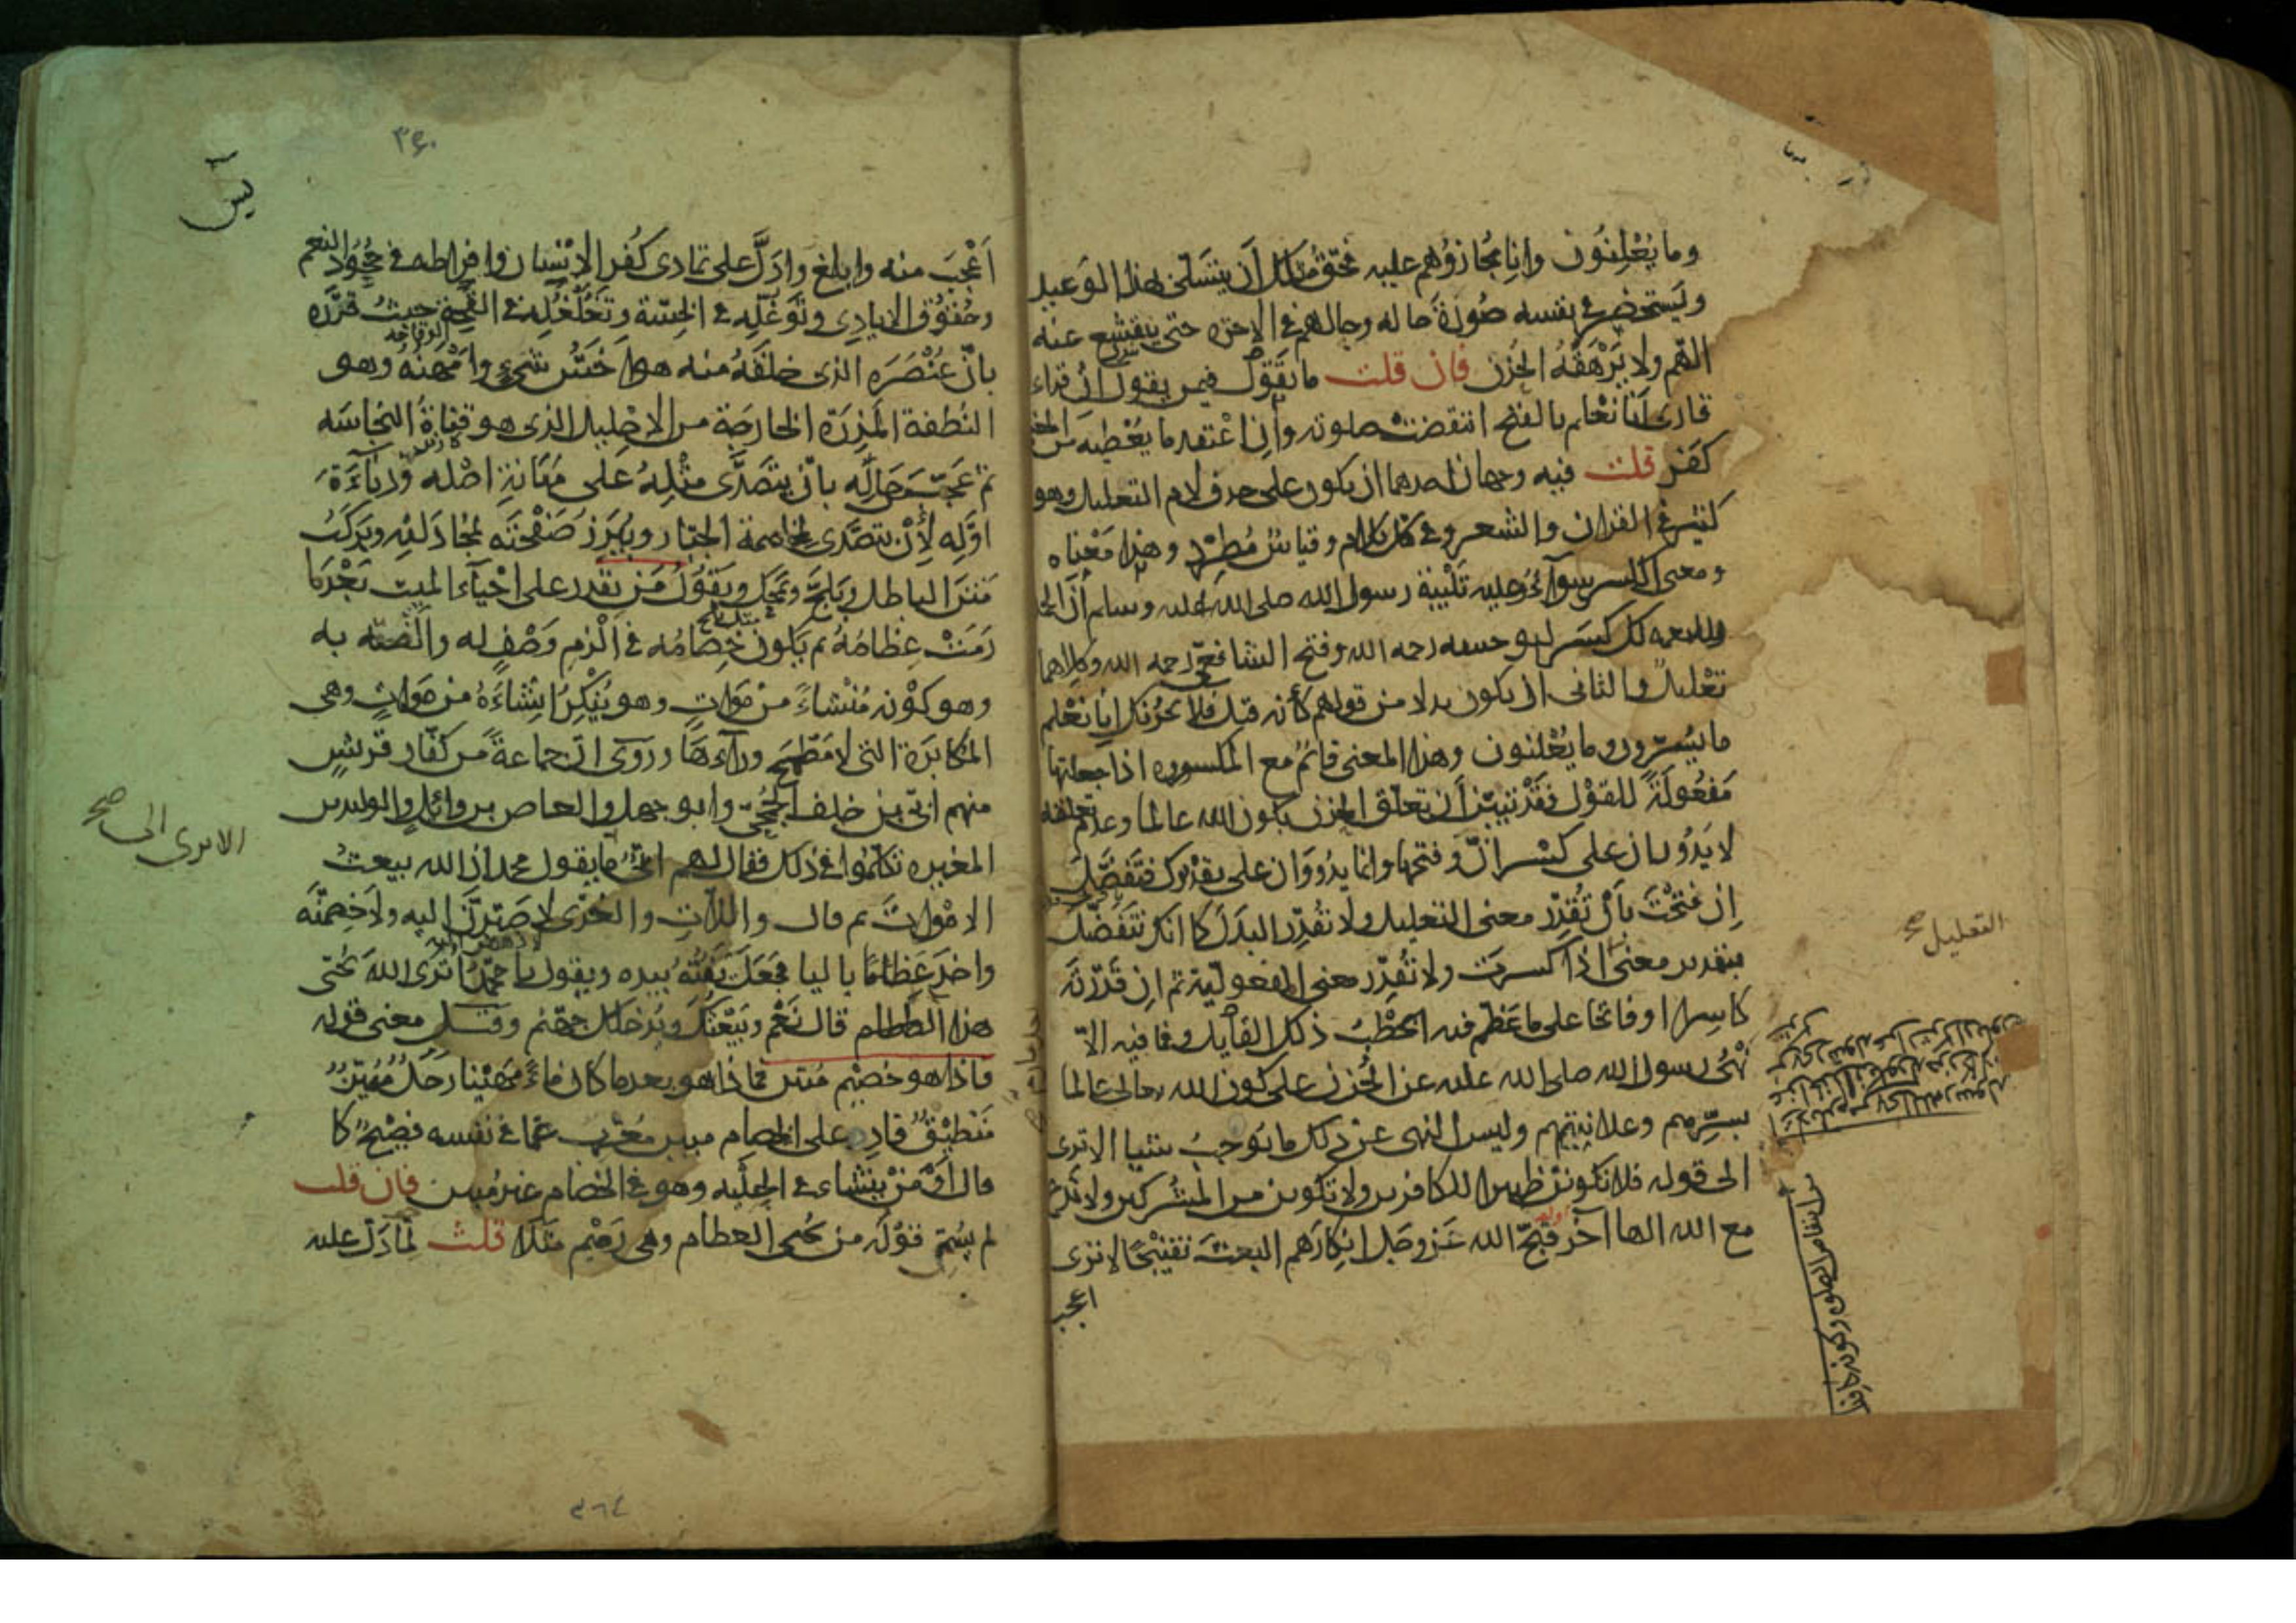 وما يُعْلِنُون وانا مجازوهم عليه فحق مثلك أن يتسلى بهذا الوعيد
ويستحضر في نفسه صُورة حاله وحالهم في الاخرة حتى ينقشع عنه
الهم ولا يَرْهَقَهُ الحُزن فان قلت ما تقول فيمن يقول ان قراء
قارئ أنا نعلم بالفتح انتقضت صلوته وإن اعتقد ما يُعْطيه من المعنى
كفر قلت فيه وجهان احدهما ان يكون على حذف لام التعليل وهو
كثير في القران والشعر وفي كل كلام وقياس مُطّرد وهذا مَعْناه
ومعنى الكسر سوآء وعليه تَلْبِيَة رسول الله صلى الله عليه وسلم أنّ الحمد
والنعمه لك كَسَر ابو حنيفه رحمه الله وفتح الشافعي رحمه الله وكلاهما
تَعْليل والثانى ان يكون بدلا من قولهم كأنه قيل فلا يحزنك أنا نَعْلم
ما يُسِرّون وما يُعْلنون وهذا المعنى قائم مع المكسوره اذا جعلتها
مَفعُولَةً للقَوْل فقدْ تبيّن أن تعلق الحزن بكون الله عالما وعدم تعلقه
لا يَدُوران على كسْر انّ وفتحها وانما يدُورَان على تقديرك فتَفصّلُ
إن فتحْتَ بأنْ تُقدِّر معنى التعليل ولا تقدّر البدَلَ كما انك تَفصّل
بتقدير معنى اذا كسرت ولا تُقدّر معنى المفعوليّة ثم ان قَدّرْتَه
كاسرا او فاتحا على ما عَظّم فيه الخَطْبَ ذلك القائل فما فيه الاّ
نَهْيُ رسول الله صلى الله عليه عن الحُزن على كون الله تعالى عالما
بسِرّهم وعلانِيَتهم وليس النهى عن ذلك ما يُوجبُ شيئا الا ترى
الى قوله فلا تكونن ظهيرا للكافرين ولا تكونن من المشركين ولا تدع
مع الله الها آخر قبّح الله عزّ وجل انكارَهم البعثَ تقبيحًا لا ترى
اعجب
التعليل صح
يس
٣٤٠
أعْجَبَ منه وابلغ وادَلَّ على تمادى كُفر الانسان وافراطه في جُحُود النعم
وعُقوق الايادى وتَوَغّله في الخِسّة وتغلغُله في القحة حيث قرّره
بانّ عُنْصُرَه الذى خلقَهُ منه هو أخَسُّ شيء وامْهَنُهُ وهو
النُطفة المَذِرَة الخارجَة من الاحليل الذى هو قناةُ النجاسه
ثم عَجّب مَن حَاله بانْ يتصَدّى مثْلُهُ على مَهانة اصله ودناءَة
اوّله لأنْ يتصَدّى لمخاصمة الجبّار ويُبرزُ صَفْحَتَه لمجادَلته ويَركَبُ
مَتنَ الباطل ويَلِجّ ويمحَك ويَقُولُ مَن يقدر على احْيآء الميت بَعْدَما
رَمّتْ عِظامُهُ ثم يكون خِصامُه في الْزم وَصْفٍ له والْصَقه به
وهو كَوْنه مُنْشاءً مِنْ مَوات وهو يُنكِرُ انشاءَهُ من مَوَات وهى
المكابَرة التى لا مَطمَح ورآءَها وروى انّ جماعةً من كفّار قريش
منهم ابَىّ بن خلف الجُمَحيّ وابو جهل والعاص بن وائل والوليد بن
المغيره تكلّموا في ذلك فقال لهم ابىّ ما يقول محمد ان الله يبعث
الامْوات ثم قال واللات والعُزّى لاصَيّرنّ اليه ولاخصِمَنّه
واخذ عَظمًا باليا فجَعَل يَفُتّه بيده ويقول يا محمّد أترى الله يُحْيى
هذا العظام قال نَعَمْ ويَبْعَثُكَ ويُدْخلك جهنم وقيل معنى قوله
فاذا هو خصيم مُبين فاذا هو بعد ما كان ماءً مَهيْنا رَجُلٌ مُميّزٌ
مِنْطيْقٌ قادر على الخصام مبين مُعْرب عمّا في نفسه فصيْحٌ كما
قال أوَمَنْ يُنَشاء في الحِلْيه وهو في الخصام غير مُبين فان قلت
لم سُمّى قوْلَه من يُحيى العظام وهى رَميْم مثَلاً قلتُ لِمَا دَلّ عليه
الا ترى الى صح